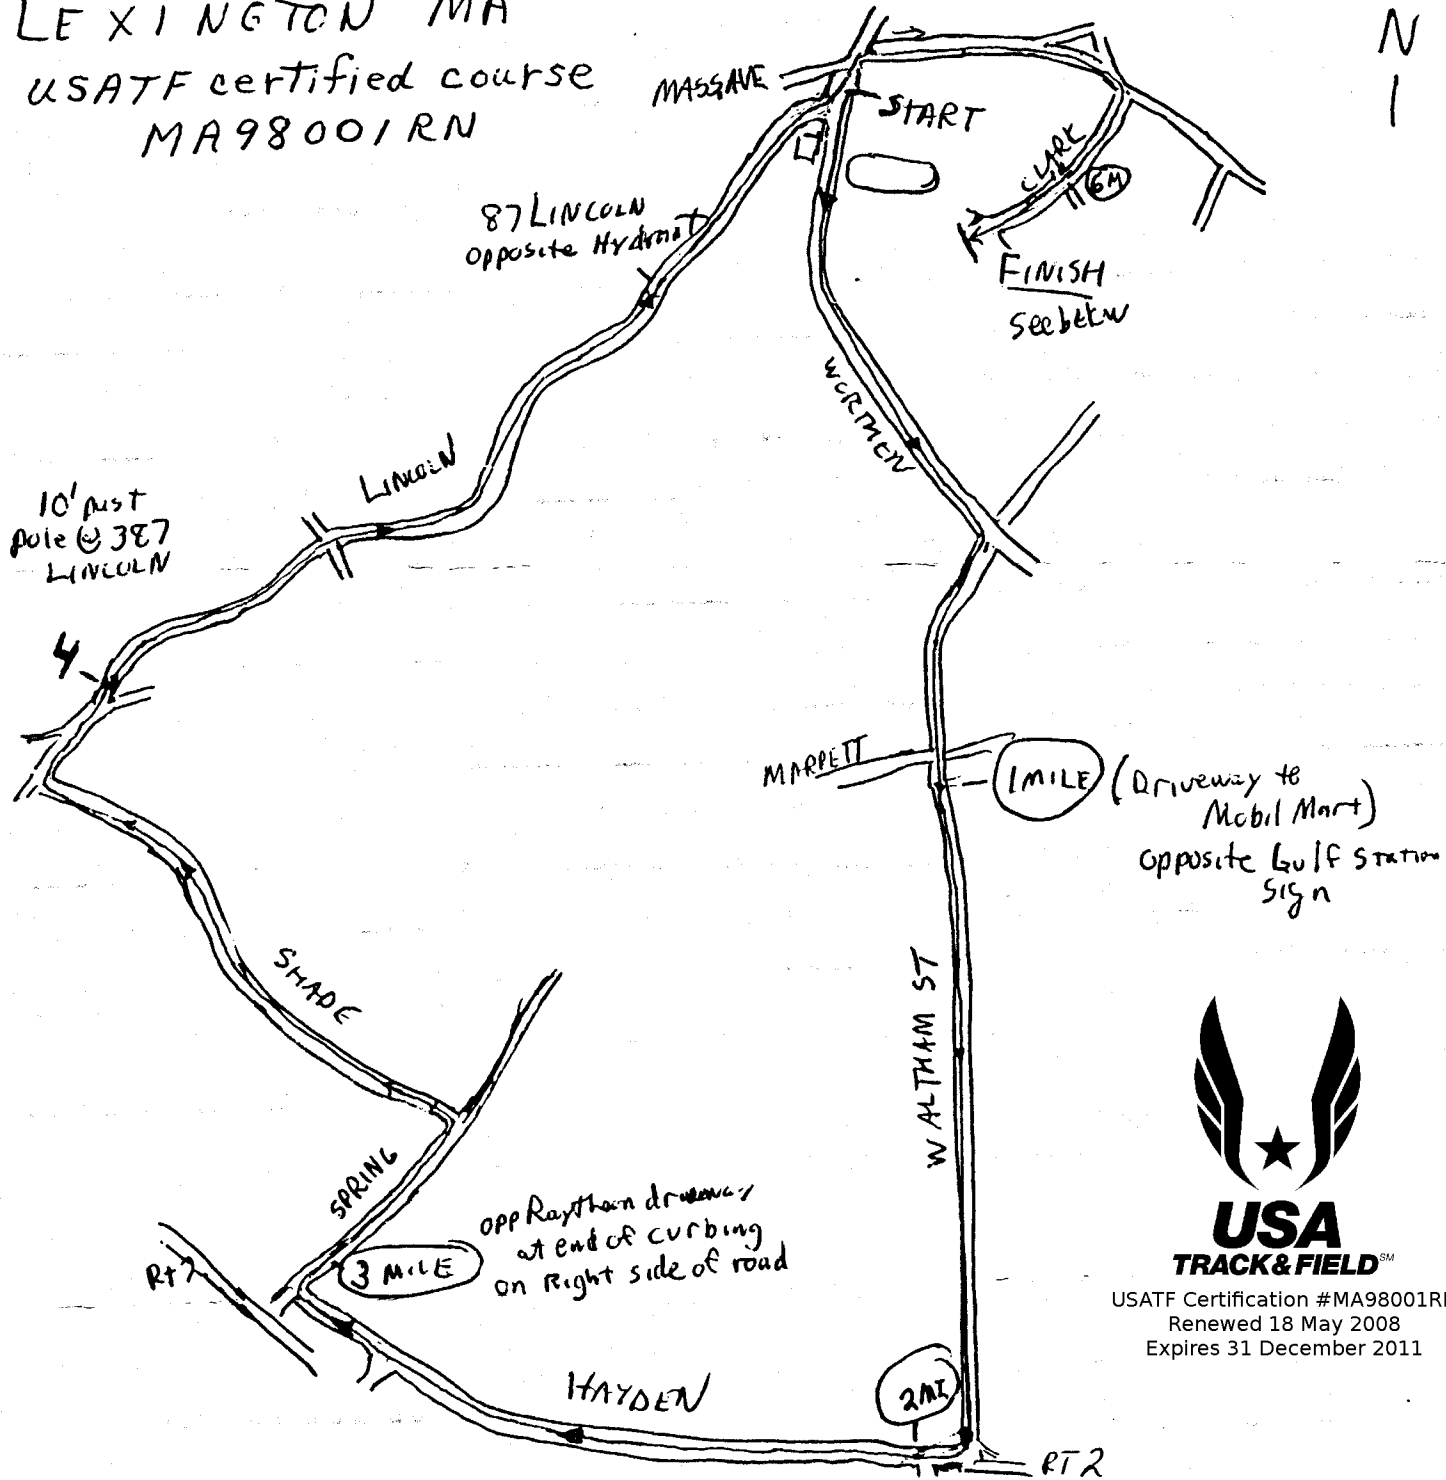 LEXINGTON MA
USATF certified course
MA98001RN
N
MASSAVE
START
CLARK
6M
87 LINCOLN
opposite Hydrant
FINISH
see below
WORTHEN
LINCOLN
10' past
pole @ 387
LINCOLN
4
MARRETT
1 MILE (Driveway to
Mobil Mart)
opposite Gulf Station
Sign
SHADE
WALTHAM ST
SPRING
opp Raytheon driveway
at end of curbing
on Right side of road
3 MILE
RT 2
HAYDEN
2 MI
RT 2
USA
TRACK & FIELD SM
USATF Certification #MA98001R
Renewed 18 May 2008
Expires 31 December 2011